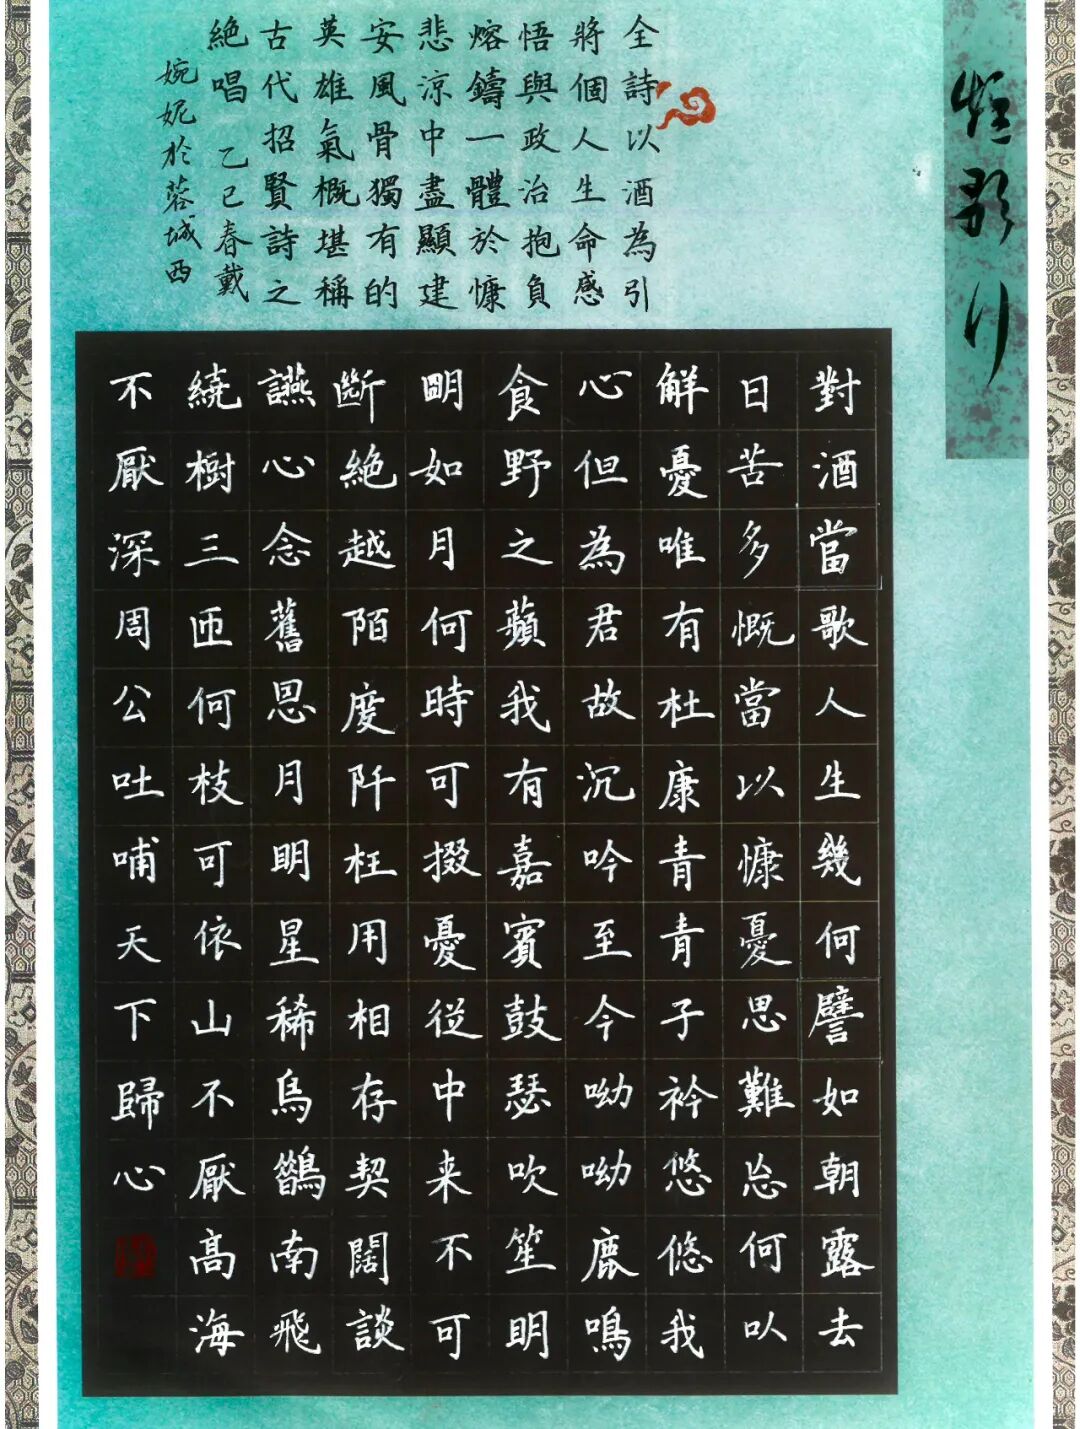 短歌行
全詩以酒為引
將個人生命感
悟與政治抱負
熔鑄一體於慷
悲涼中盡顯建
安風骨獨有的
英雄氣概堪稱
古代招賢詩之
絕唱 乙巳春戴
婉妮於蓉城西
對酒當歌人生幾何譬如朝露去
日苦多慨當以慷憂思難忘何以
解憂唯有杜康青青子衿悠悠我
心但為君故沉吟至今呦呦鹿鳴
食野之蘋我有嘉賓鼓瑟吹笙明
明如月何時可掇憂從中来不可
斷絕越陌度阡枉用相存契闊談
讌心念舊恩月明星稀烏鵲南飛
繞樹三匝何枝可依山不厭高海
不厭深周公吐哺天下歸心